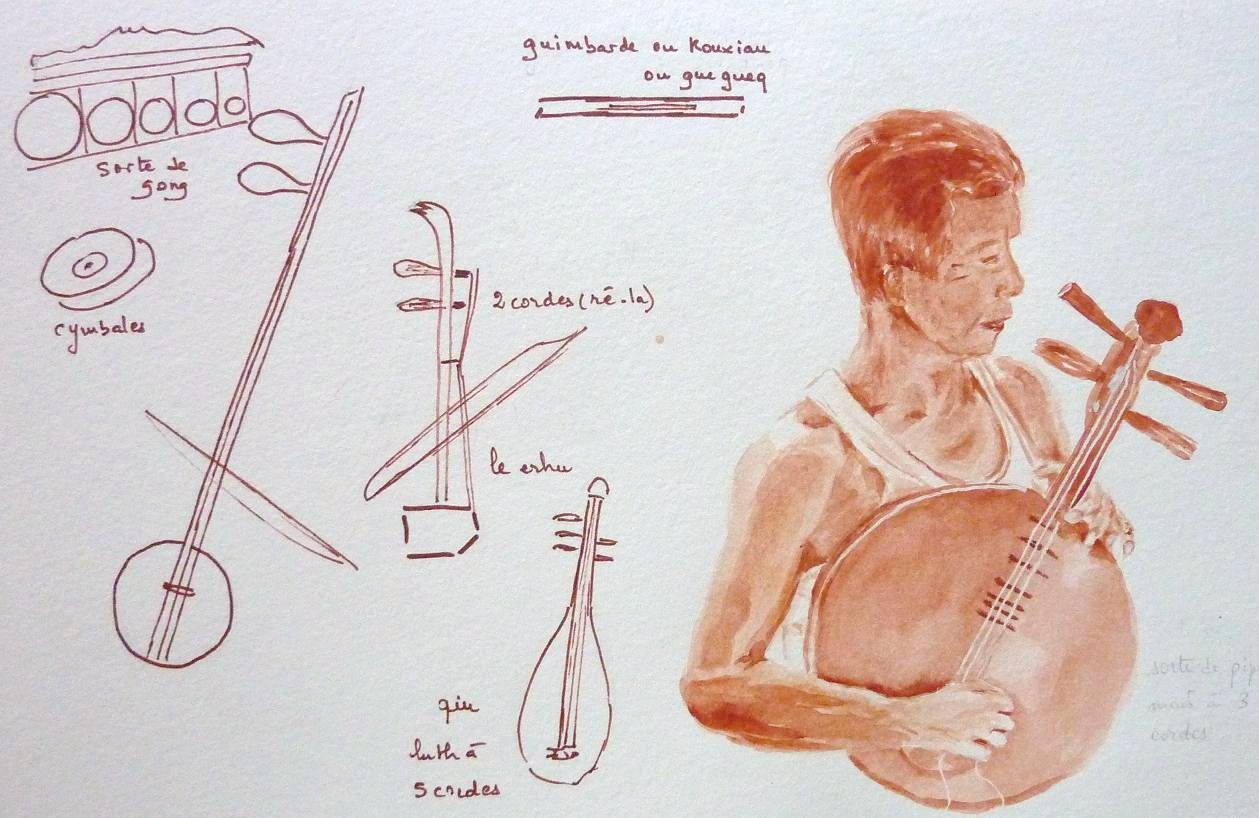 guimbarde ou Kouxian
ou guegueq
sorte de
gong
cymbales
2 cordes (ré-la)
le erhu
qin
luth à
5 cordes
sorte de pip
mais à 3
cordes